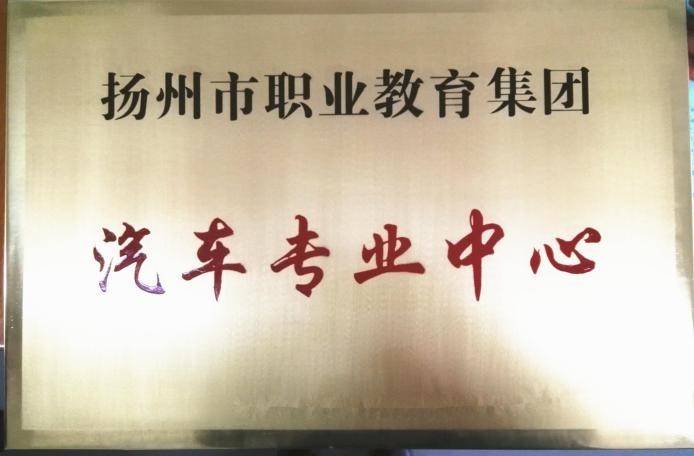 扬州市职业教育集团
汽车专业中心